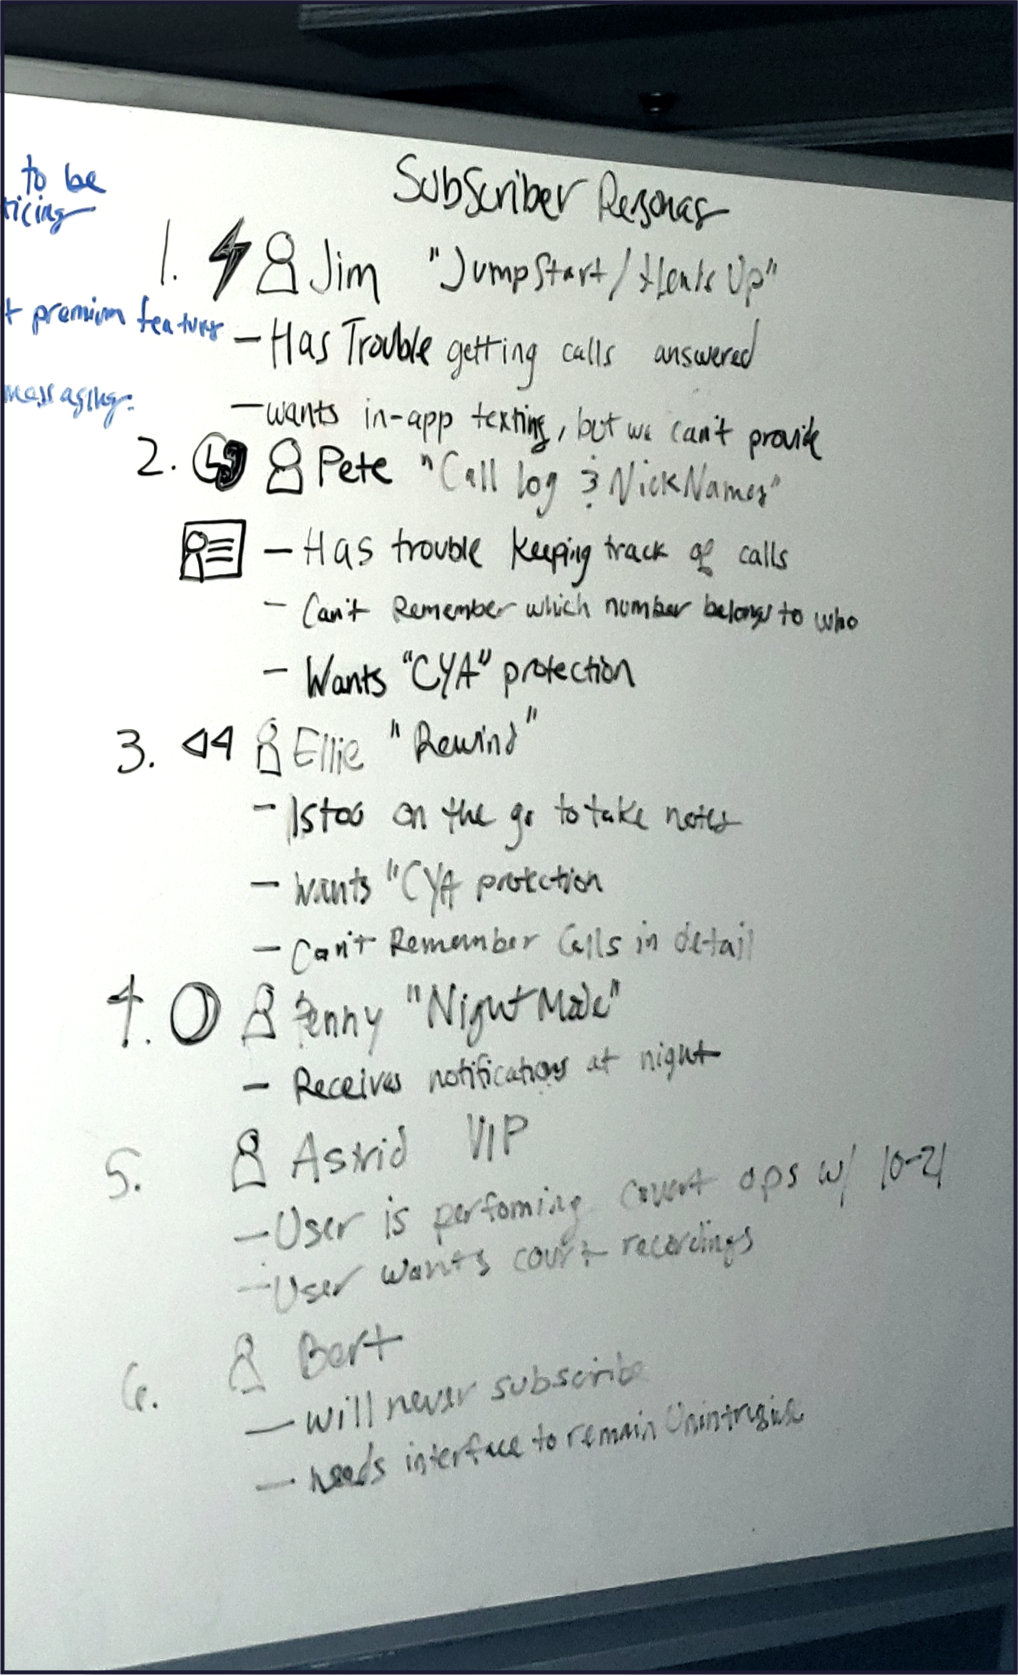 to be
Subscriber Personas
1. Jim "JumpStart/Heads Up"
premium feature
- Has Trouble getting calls answered
messaging:
- wants in-app texting, but we can't provide
2. Pete "Call log & NickNames"
- Has trouble keeping track of calls
- Can't Remember which number belongs to who
- Wants "CYA" protection
3. Ellie "Rewind"
- Is too on the go to take notes
- Wants "CYA protection
- Can't Remember Calls in detail
4. Penny "Night Mode"
- Receives notifications at night
5. Astrid VIP
- User is perfoming covert ops w/ 10-21
- User wants court recordings
6. Bert
- will never subscribe
- needs interface to remain Unintrusive